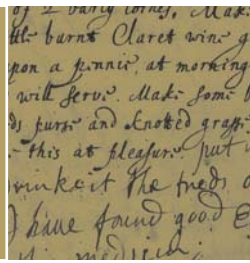 of 2 barly cornes. Make
tle burnt Claret wine g
upon a pennie, at morning
will serve. Make some b
ds purse and knotted grasse
this at pleasure put
drinke it the
I have found good e
medicin